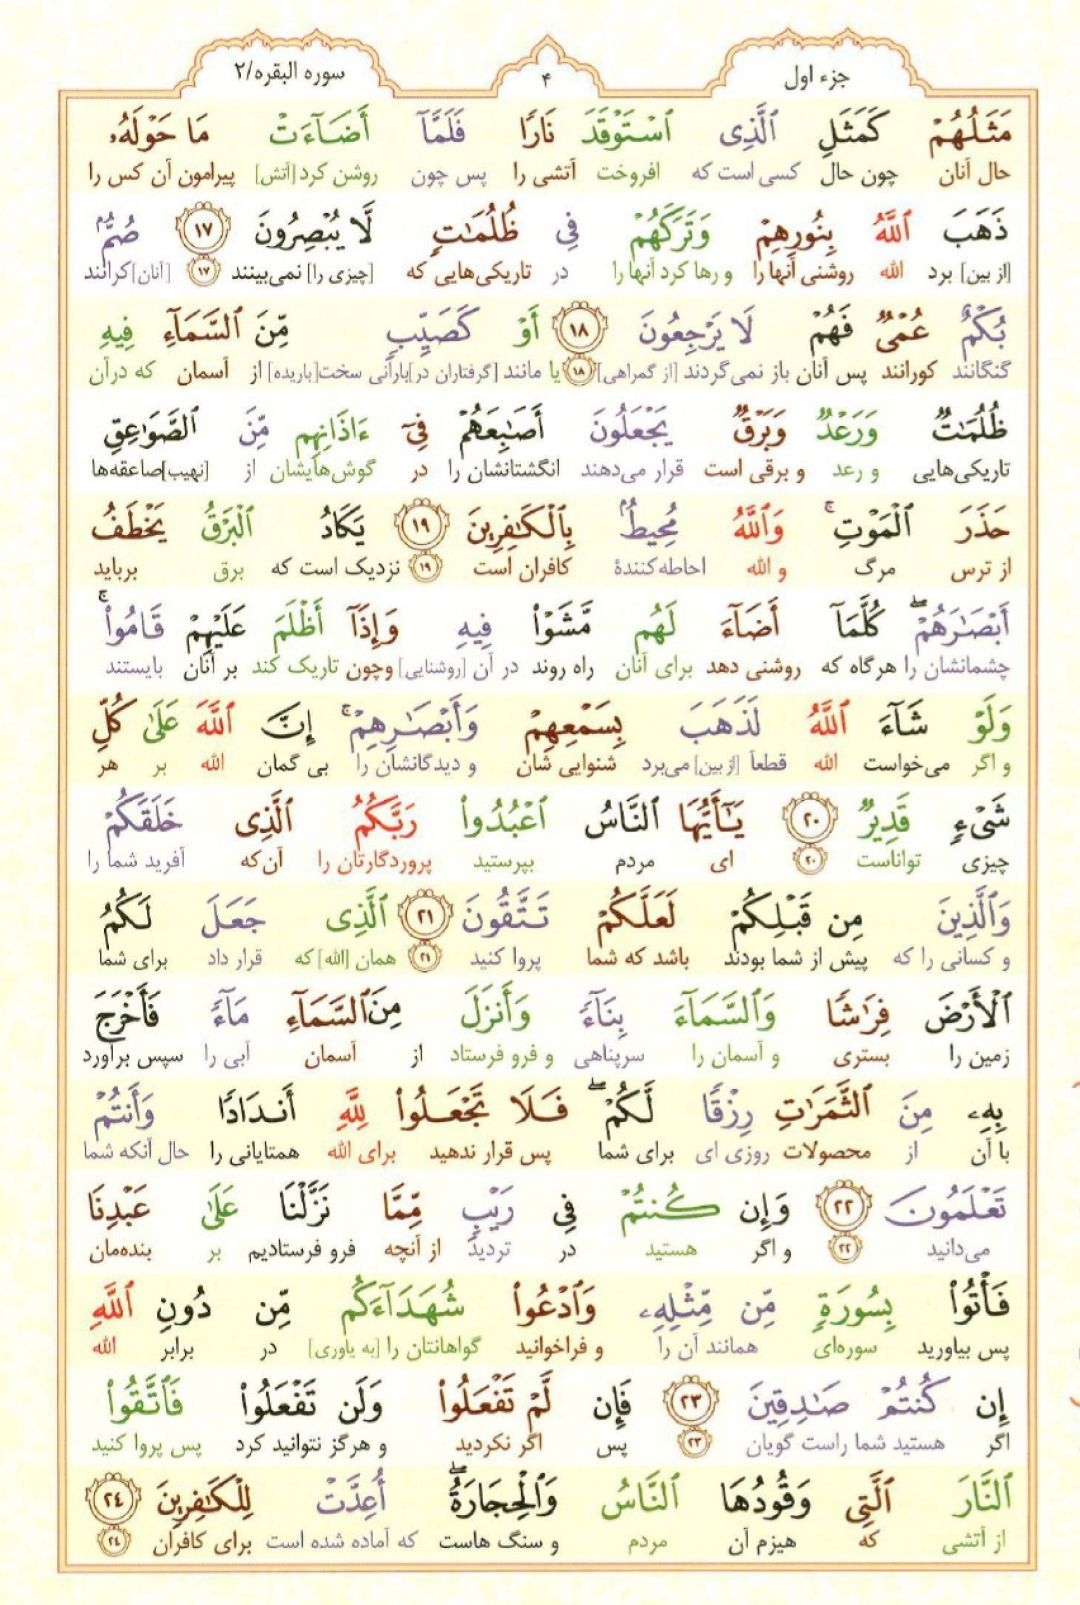 جزء اول
۴
سوره البقره/۲
مَثَلُهُمْ كَمَثَلِ ٱلَّذِى ٱسْتَوْقَدَ نَارًا فَلَمَّآ أَضَآءَتْ مَا حَوْلَهُۥ
حال آنان چون حال کسی است که افروخت آتشی را پس چون روشن کرد [آتش] پیرامون آن کس را
ذَهَبَ ٱللَّهُ بِنُورِهِمْ وَتَرَكَهُمْ فِى ظُلُمَـٰتٍ لَّا يُبْصِرُونَ ۱۷ صُمٌّۢ
[از بین] برد الله روشنی آنها را و رها کرد آنها را در تاریکی‌هایی که [چیزی را] نمی‌بینند ۱۷ [آنان] کرانند
بُكْمٌ عُمْىٌ فَهُمْ لَا يَرْجِعُونَ ۱۸ أَوْ كَصَيِّبٍ مِّنَ ٱلسَّمَآءِ فِيهِ
گنگانند کورانند پس آنان باز نمی‌گردند [از گمراهی] ۱۸ یا مانند [گرفتاران در] بارانی سخت [باریده] از آسمان که در آن
ظُلُمَـٰتٌ وَرَعْدٌ وَبَرْقٌ يَجْعَلُونَ أَصَـٰبِعَهُمْ فِىٓ ءَاذَانِهِم مِّنَ ٱلصَّوَٰعِقِ
تاریکی‌هایی و رعد و برقی است قرار می‌دهند انگشتانشان را در گوش‌هایشان از [نهیب] صاعقه‌ها
حَذَرَ ٱلْمَوْتِ ۚ وَٱللَّهُ مُحِيطٌۢ بِٱلْكَـٰفِرِينَ ۱۹ يَكَادُ ٱلْبَرْقُ يَخْطَفُ
از ترس مرگ و الله احاطه‌کنندهٔ کافران است ۱۹ نزدیک است که برق برباید
أَبْصَـٰرَهُمْ ۖ كُلَّمَآ أَضَآءَ لَهُم مَّشَوْا۟ فِيهِ وَإِذَآ أَظْلَمَ عَلَيْهِمْ قَامُوا۟ ۚ
چشمانشان را هر گاه که روشنی دهد برای آنان راه روند در آن [روشنایی] و چون تاریک کند بر آنان بایستند
وَلَوْ شَآءَ ٱللَّهُ لَذَهَبَ بِسَمْعِهِمْ وَأَبْصَـٰرِهِمْ ۚ إِنَّ ٱللَّهَ عَلَىٰ كُلِّ
و اگر می‌خواست الله قطعاً [از بین] می‌برد شنوایی شان و دیدگانشان را بی گمان الله بر هر
شَىْءٍ قَدِيرٌ ۲۰ يَـٰٓأَيُّهَا ٱلنَّاسُ ٱعْبُدُوا۟ رَبَّكُمُ ٱلَّذِى خَلَقَكُمْ
چیزی تواناست ۲۰ ای مردم بپرستید پروردگارتان را آن‌که آفرید شما را
وَٱلَّذِينَ مِن قَبْلِكُمْ لَعَلَّكُمْ تَتَّقُونَ ۲۱ ٱلَّذِى جَعَلَ لَكُمُ
و کسانی را که پیش از شما بودند باشد که شما پروا کنید ۲۱ همان [الله] که قرار داد برای شما
ٱلْأَرْضَ فِرَٰشًا وَٱلسَّمَآءَ بِنَآءً وَأَنزَلَ مِنَ ٱلسَّمَآءِ مَآءً فَأَخْرَجَ
زمین را بستری و آسمان را سرپناهی و فرو فرستاد از آسمان آبی را سپس برآورد
بِهِۦ مِنَ ٱلثَّمَرَٰتِ رِزْقًا لَّكُمْ ۖ فَلَا تَجْعَلُوا۟ لِلَّهِ أَندَادًا وَأَنتُمْ
با آن از محصولات روزی ای برای شما پس قرار ندهید برای الله همتایانی را حال آنکه شما
تَعْلَمُونَ ۲۲ وَإِن كُنتُمْ فِى رَيْبٍ مِّمَّا نَزَّلْنَا عَلَىٰ عَبْدِنَا
می‌دانید ۲۲ و اگر هستید در تردید از آنچه فرو فرستادیم بر بنده‌مان
فَأْتُوا۟ بِسُورَةٍ مِّن مِّثْلِهِۦ وَٱدْعُوا۟ شُهَدَآءَكُم مِّن دُونِ ٱللَّهِ
پس بیاورید سوره‌ای همانند آن را و فراخوانید گواهانتان را [به یاوری] در برابر الله
إِن كُنتُمْ صَـٰدِقِينَ ۲۳ فَإِن لَّمْ تَفْعَلُوا۟ وَلَن تَفْعَلُوا۟ فَٱتَّقُوا۟
اگر هستید شما راست گویان ۲۳ پس اگر نکردید و هرگز نتوانید کرد پس پروا کنید
ٱلنَّارَ ٱلَّتِى وَقُودُهَا ٱلنَّاسُ وَٱلْحِجَارَةُ ۖ أُعِدَّتْ لِلْكَـٰفِرِينَ ۲۴
از آتشی که هیزم آن مردم و سنگ هاست که آماده شده است برای کافران ۲۴